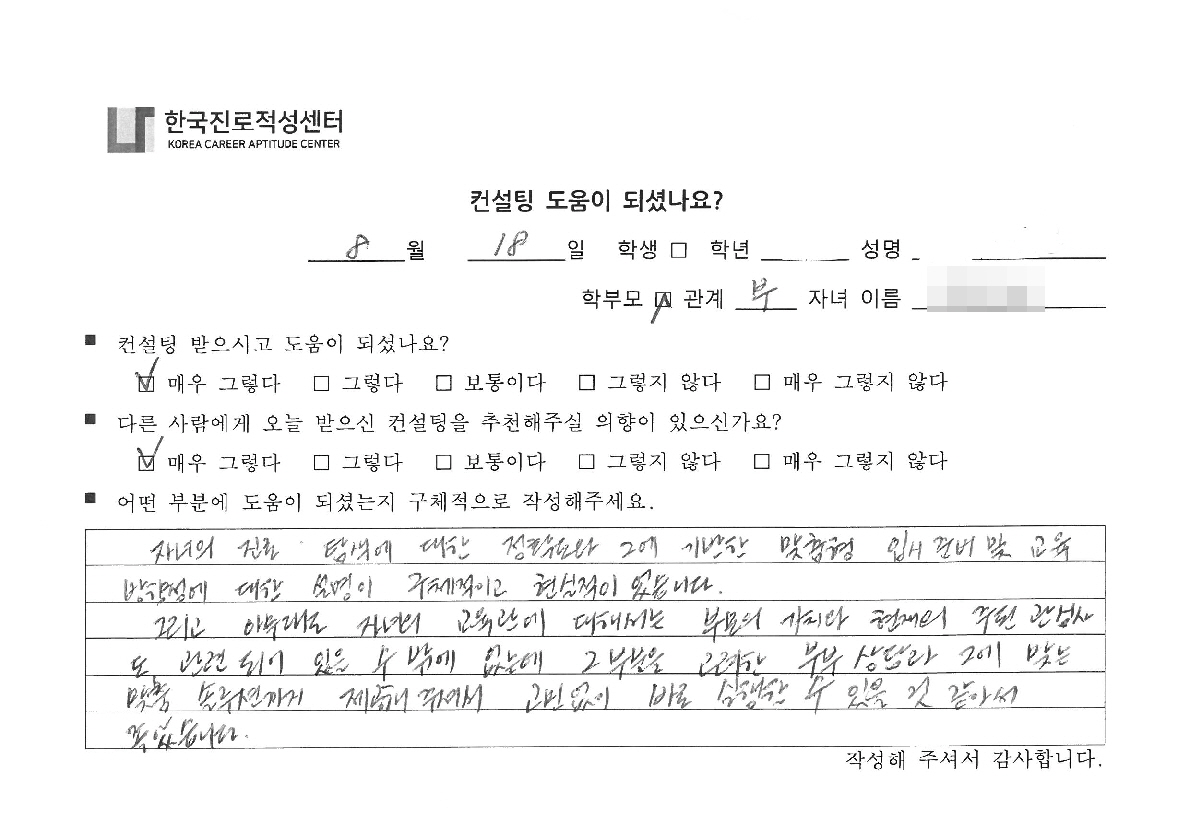 한국진로적성센터
KOREA CAREER APTITUDE CENTER
컨설팅 도움이 되셨나요?
8 월 18 일 학생 □ 학년 성명
학부모 ☑ 관계 부 자녀 이름
■ 컨설팅 받으시고 도움이 되셨나요?
☑ 매우 그렇다 □ 그렇다 □ 보통이다 □ 그렇지 않다 □ 매우 그렇지 않다
■ 다른 사람에게 오늘 받으신 컨설팅을 추천해주실 의향이 있으신가요?
☑ 매우 그렇다 □ 그렇다 □ 보통이다 □ 그렇지 않다 □ 매우 그렇지 않다
■ 어떤 부분에 도움이 되셨는지 구체적으로 작성해주세요.
자녀의 진로 탐색에 대한 정확도와 그에 기반한 맞춤형 입시 준비 및 교육
방향성에 대한 설명이 구체적이고 현실적이 었습니다.
그리고 아무래도 자녀의 교육관에 대해서는 부모의 가치와 현재의 주된 관심사
도 관련 되어 있을 수 밖에 없는데 그 부분을 고려한 부부 상담과 그에 맞는
맞춤 솔루션까지 제공해 주셔서 고민없이 바로 실행할 수 있을 것 같아서
좋았습니다.
작성해 주셔서 감사합니다.